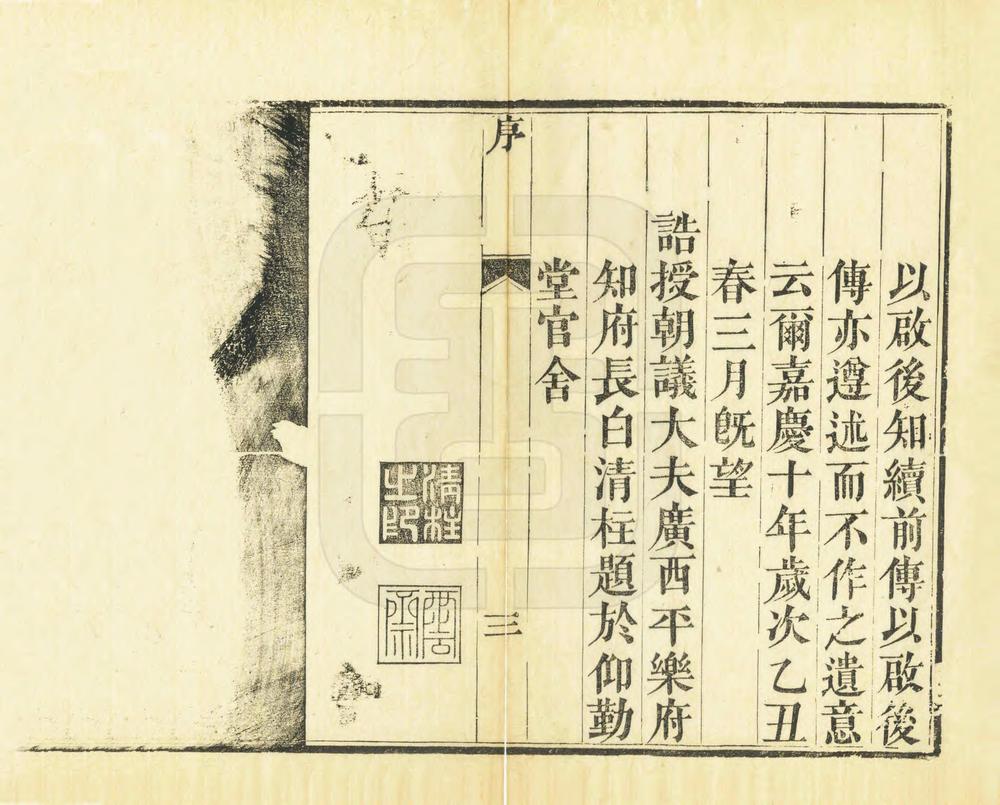 以啟後知續前傳以啟後
傳亦遵述而不作之遺意
云爾嘉慶十年歲次乙丑
春三月既望
誥授朝議大夫廣西平樂府
知府長白清柱題於仰勤
堂官舍
序
三
清柱之印